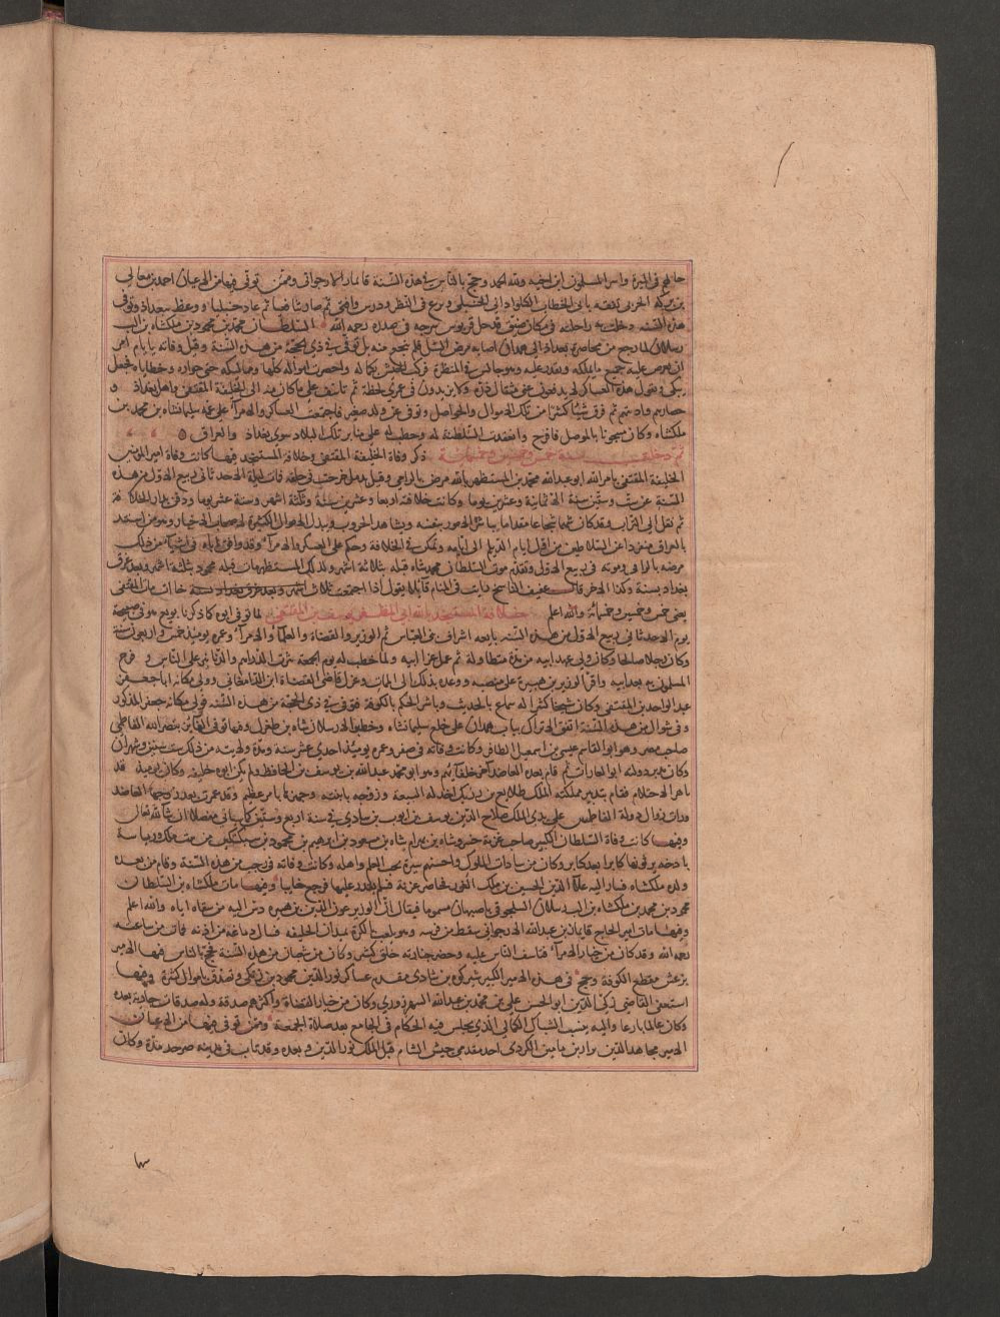 حالهم في البرية واسر المسلمون ابن اخيه ولله الحمد وحج بالناس في هذه السنة قايماز الارجواني وممن توفي فيها من الاعيان احمد بن معالي
بن بركة الحربي تفقه بابي الخطاب الكلواداني الحنبلي وبرع في النظر ودرس وافتى ثم صار شافعيا ثم عاد حنبليا ووعظ ببغداد وتوفي
هذه السنة دخلت به راحلته في مكان ضيق فدخل قربوس سرجه في صدره رحمه الله السلطان محمد بن محمود بن ملكشاه بن الب
رسلان لما رجع من محاصرة بغداد الى همدان اصابه مرض السل فلم ينج منه بل توفي في ذي الحجة من هذه السنة وقبل وفاته بايام امر
ان يعرض عليه جميع ما يملكه ويقدر عليه وهو جالس في المنظرة فركب الجيش بكماله واحضرت امواله كلها ومماليكه حتى جواره وحظاياه فجعل
يبكي ويقول هذه العساكر لا يدفعون عني مثقال ذرة ولا يزيدون في عمري لحظة ثم تاسف على ما كان منه الى الخليفة المقتفي واهل بغداد و
حصارهم واذيتهم ثم فرق شيئا كثيرا من تلك الاموال والحواصل وتوفي عن ولد صغير فاجتمعت العساكر والامرآء على عمه سليمانشاه بن محمد بن
ملكشاه وكان مسجونا بالموصل فافرج وانعقدت السلطنة له وخطب له على منابر تلك البلاد سوى بغداد والعراق
ثم دخلت سنة خمس وخمسين وخمسمائة ذكر وفاة الخليفة المقتفي وخلافة المستنجد فيها كانت وفاة امير المؤمنين
الخليفة المقتفي بامر الله ابو عبد الله محمد بن المستظهر بالله مرض بالتراقي وقيل بدمل خرج في حلقه فمات ليلة الاحد ثاني ربيع الاول من هذه
السنة عن ست وستين سنة الا ثمانية وعشرين يوما وكانت خلافته اربعا وعشرين سنة وثلثة اشهر وستة عشر يوما ودفن بدار الخلافة
ثم نقل الى الترب وقد كان شهما شجاعا مقداما يباشر الامور بنفسه ويشاهد الحروب ويبذل الاموال الكثيرة لاصحاب الاخبار وهو من استبد
بالعراق منفردا عن السلاطين من اول ايام الديلم الى ايامه وتمكن في الخلافة وحكم على العسكر والامرآء وقد وافق اباه في اشياء من ذلك
مرضه بالتراقي وموته في ربيع الاول وتقدم موت السلطان محمد شاه قبله بثلاثة اشهر وكذلك المستظهر مات قبله محمود بثلثة اشهر وبعد غرق
بغداد بسنة وكذا الاخر قال عفيف الناسخ رايت في المنام قائلا يقول اذا اجتمعت ثلاث خاآت مات المقتفي
يعني خمس وخمسين وخمسمائة والله اعلم خلافة المستنجد بالله ابي المظفر يوسف بن المقتفي لما توفي ابوه كما ذكرنا بويع هو في صبيحة
يوم الاحد ثاني ربيع الاول من هذه السنة بايعه اشراف بني العباس ثم الوزير والقضاة والعلمآء والامرآء وعمره يومئذ خمس واربعون سنة
وكان رجلا صالحا وكان ولي عهد ابيه من مدة متطاولة ثم عمل عزا ابيه ولما خطب له يوم الجمعة نثرت الدراهم والدنانير على الناس وفرح
المسلمون به بعد ابيه واقر الوزير بن هبيرة على منصبه ووعده بذلك الى الممات وعزل قاضي القضاة ابن الدامغاني وولى مكانه ابا جعفر بن
عبد الواحد بن الثقفي وكان شيخا كثيرا له سماع بالحديث وباشر الحكم بالكوفة فتوفي في ذي الحجة من هذه السنة فولي مكانه جعفر المذكور
وفي شوال من هذه السنة اتفق الاتراك بباب همدان على خلع سليمانشاه وخطبوا لارسلان شاه بن طغرل وفيها توفي الفايز بنصر الله الفاطمي
صاحب مصر وهو ابو القاسم عيسى بن اسمعيل الظافر وكانت وفاته في صفر وعمره يومئذ احدى عشر سنة ومدة ولايته من ذلك ست سنين وشهران
وكان مدبر دولته ابو الغارات ثم قام بعده العاضد آخر خلفآئهم وهو ابو محمد عبد الله بن يوسف بن الحافظ ولم يكن ابوه خليفة وكان يومئذ قد
ناهز الاحتلام فقام بتدبير مملكته الملك طلايع بن رزيك اخذ له البيعة وزوجه بابنته وجهزها بامر عظيم وقد عمرت بعد زوجها العاضد
ورات زوال دولة الفاطميين على يدي الملك صلاح الدين يوسف بن ايوب بن شادي في سنة اربع وستين كما سياتي مفصلا ان شآ الله تعالى
وفيها كانت وفاة السلطان الكبير صاحب غزنة خسروشاه بن بهرام شاه بن مسعود بن ابرهيم بن محمود بن سبكتكين من بيت ملك ورياسة
باذخة يرثونها كابرا بعد كابر وكان من سادات الملوك واحسنهم سيرة يحب العلم واهله وكانت وفاته في رجب من هذه السنة وقام من بعده
ولده ملكشاه فسار اليه علآ الدين الحسين بن ملك الغور فحاصر غزنة فلم يقدر عليها فرجع خايبا وفيها مات ملكشاه بن السلطان
محمود بن محمد بن ملكشاه بن الب رسلان السلجوقي باصبهان مسموما فيقال ان الوزير عون الدين بن هبيرة دس اليه من سقاه اياه والله اعلم
وفيها مات امير الحاج قايماز بن عبد الله الارجواني سقط من فرسه وهو يلعب بالكرة بميدان الخليفة فسال دماغه من اذنه فمات من ساعته
رحمه الله وقد كان من خيار الامرآء فتاسف الناس عليه وحضر جنازته خلق كثير وكان من شعبان من هذه السنة فحج بالناس فيها الامير
بزغش مقطع الكوفة وحج في هذه الامير الكبير شيركوه بن شادي مقدم عساكر نور الدين محمود بن زنكي وتصدق باموال كثيرة وفيها
استعفى القاضي زكي الدين ابو الحسن علي بن محمد بن عبد الله السهرزوري وكان من خيار القضاة واكثرهم صدقة وله صدقات جارية بعده
وكان عالما بارعا واليه ينسب الشباك الكمالي الذي يجلس فيه الحكام في الجامع بعد صلاة الجمعة وممن توفي فيها من الاعيان
الامير مجاهد الدين بزان بن مامين الكردي احد مقدمي جيش الشام قبل الملك نور الدين وبعده وقد ناب في مدينة صرخد مدة وكان